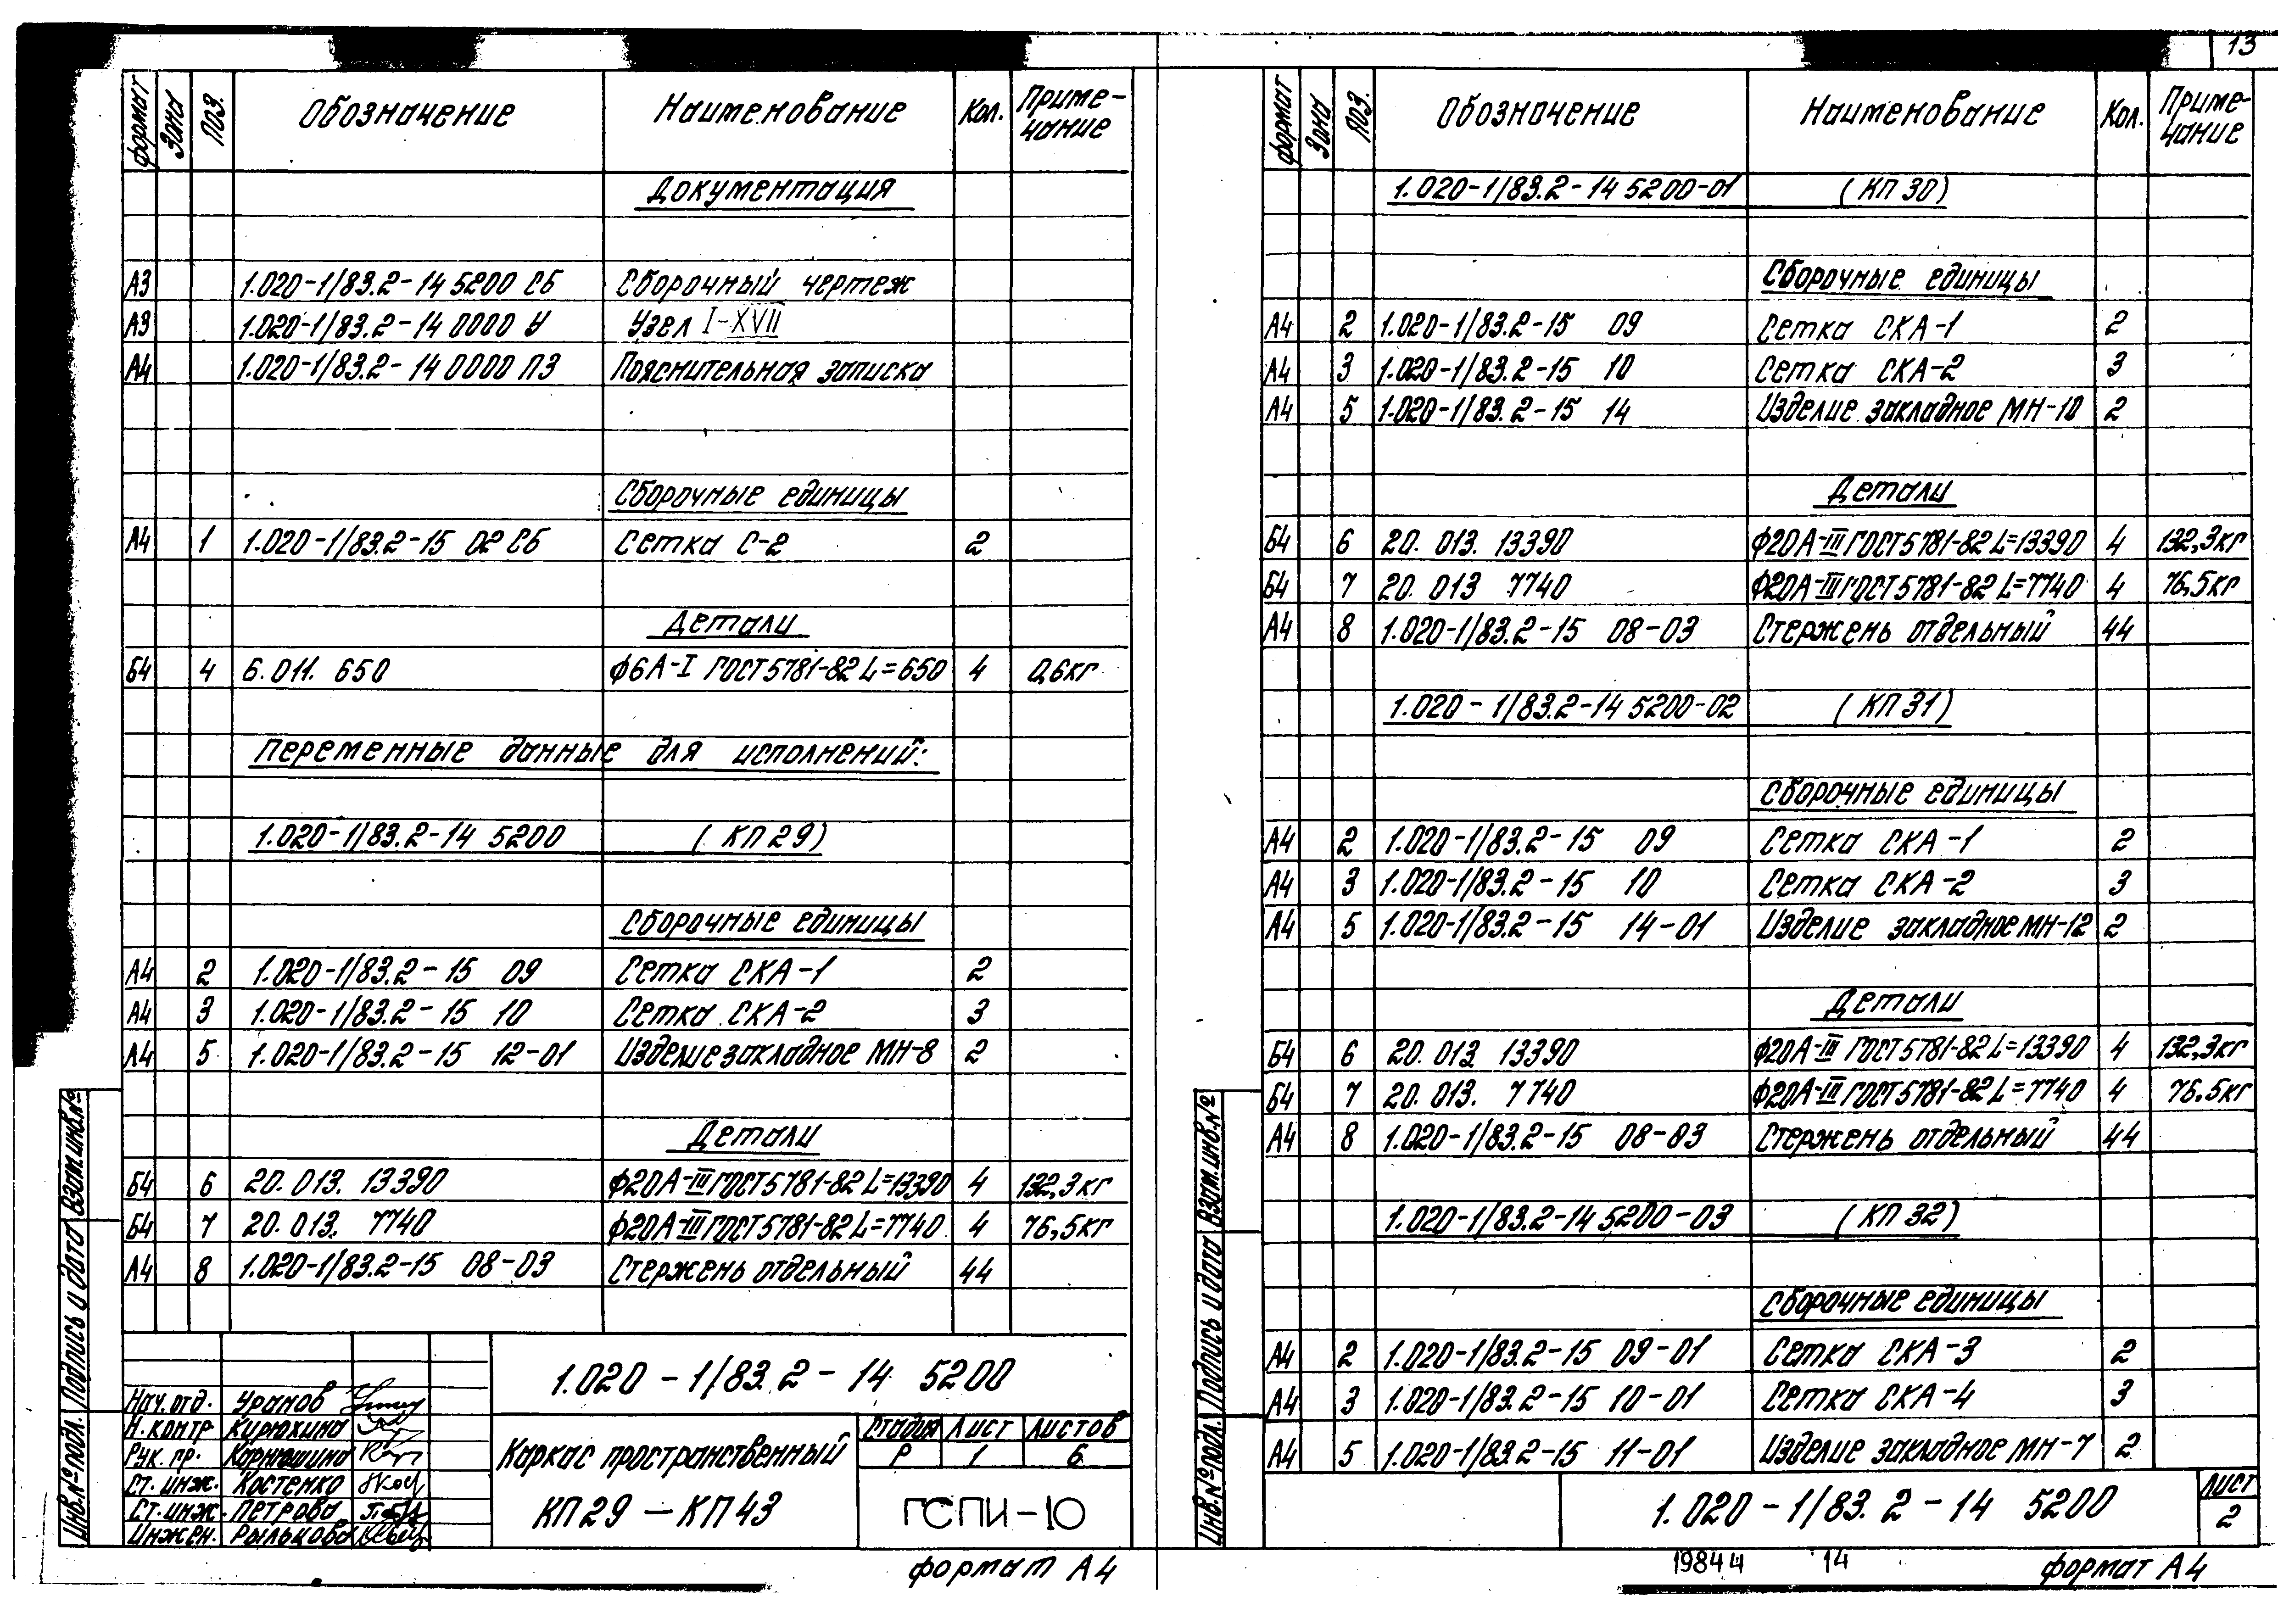 13
формат Зона Поз. Обозначение Наименование Кол. Приме-
чание
Документация
А3 1.020-1/83.2-14 5200 СБ Сборочный чертеж
А3 1.020-1/83.2-14 0000 У Узел I-XVII
А4 1.020-1/83.2-14 0000 ПЗ Пояснительная записка
Сборочные единицы
А4 1 1.020-1/83.2-15 02 СБ Сетка С-2 2
Детали
Б4 4 6.011. 650 ф6А-I ГОСТ5781-82 L=650 4 0,6кг
Переменные данные для исполнений:
1.020-1/83.2-14 5200 (КП29)
Сборочные единицы
А4 2 1.020-1/83.2-15 09 Сетка СКА-1 2
А4 3 1.020-1/83.2-15 10 Сетка СКА-2 3
А4 5 1.020-1/83.2-15 12-01 Изделие закладное МН-8 2
Детали
Б4 6 20. 013. 13390 ф20А-III ГОСТ5781-82 L=13390 4 132,3кг
Б4 7 20. 013. 7740 ф20А-III ГОСТ5781-82 L=7740 4 76,5кг
А4 8 1.020-1/83.2-15 08-03 Стержень отдельный 44
1.020-1/83.2-14 5200
Нач.отд. Уранов
Н.контр Кирюхина
Рук.пр. Карнюшина
Ст.инж. Костенко
Ст.инж. Петрова
Инжен. Рыльцова
Каркас пространственный
КП29 – КП43
Стадия Лист Листов
Р 1 6
ГСПИ-10
Инв.№подл. Подпись и дата Взам.инв.№
формат А4
формат Зона Поз. Обозначение Наименование Кол. Приме-
чание
1.020-1/83.2-14 5200-01 (КП30)
Сборочные единицы
А4 2 1.020-1/83.2-15 09 Сетка СКА-1 2
А4 3 1.020-1/83.2-15 10 Сетка СКА-2 3
А4 5 1.020-1/83.2-15 14 Изделие закладное МН-10 2
Детали
Б4 6 20. 013. 13390 ф20А-III ГОСТ5781-82 L=13390 4 132,3кг
Б4 7 20. 013 7740 ф20А-III ГОСТ5781-82 L=7740 4 76,5кг
А4 8 1.020-1/83.2-15 08-03 Стержень отдельный 44
1.020-1/83.2-14 5200-02 (КП31)
Сборочные единицы
А4 2 1.020-1/83.2-15 09 Сетка СКА-1 2
А4 3 1.020-1/83.2-15 10 Сетка СКА-2 3
А4 5 1.020-1/83.2-15 14-01 Изделие закладное МН-12 2
Детали
Б4 6 20. 013 13390 ф20А-III ГОСТ5781-82 L=13390 4 132,3кг
Б4 7 20. 013. 7740 ф20А-III ГОСТ5781-82 L=7740 4 76.5кг
А4 8 1.020-1/83.2-15 08-03 Стержень отдельный 44
1.020-1/83.2-14 5200-03 (КП32)
Сборочные единицы
А4 2 1.020-1/83.2-15 09-01 Сетка СКА-3 2
А4 3 1.020-1/83.2-15 10-01 Сетка СКА-4 3
А4 5 1.020-1/83.2-15 11-01 Изделие закладное МН-7 2
1.020-1/83.2-14 5200
Лист
2
Инв.№подл. Подпись и дата Взам.инв.№
19844 14
формат А4